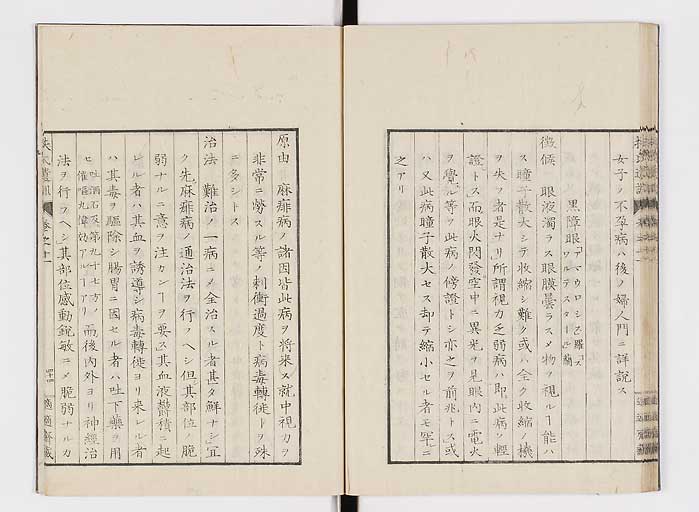 女子ノ不孕病ハ後ノ婦人門ニ詳説ス
黒障眼
徴候 眼液濁ラス眼膜曇ラスメ物ヲ視ルヿ能ハ
ス瞳子散大シテ收縮シ難ク或ハ全ク收縮ノ機
ヲ失フ者是ナリ所謂視力乏弱病ハ即此病ノ輕
證トス而眼火閃發空中ニ異光ヲ見眼内ニ電火
ヲ覺ル等ヲ此病ノ傍證トシ亦之ヲ前兆トス或
ハ又此病瞳子散大セス却テ縮小セル者モ罕ニ
之アリ
原由 麻痱病ノ諸因皆此病ヲ將来ス就中視力ヲ
非常ニ勞スル等ノ刺衝過度ト病毒轉徙トヲ殊
ニ多シトス
治法 難治ノ一病ニメ全治スル者甚タ鮮ナシ宜
ク先麻痱病ノ通治法ヲ行フヘシ但其部位ノ脆
弱ナルニ意ヲ注カンヿヲ要ス其血液鬱積ニ起
レル者ハ其血ヲ誘導シ病毒轉徙ヨリ来レル者
ハ其毒ヲ驅除シ腸胃ニ因セル者ハ吐下藥ヲ用
ヒ 吐酒石及第九十七方ノ催嘔丸偉効アルヿアリ 而後内外ヨリ神經治
法ヲ行フヘシ其部位感動鋭敏ニメ脆弱ナルカ
扶氏遺訓 卷之十一
適適齋藏